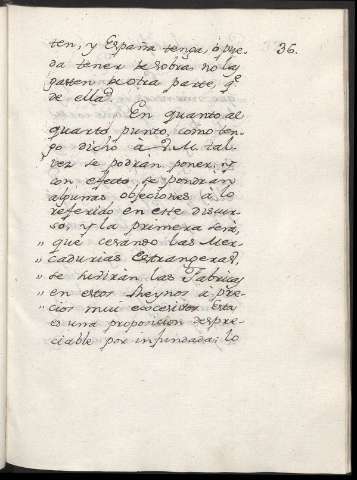 36.
ten, y España tenga, ò pue-
da tener de sobra, no las
gasten de otra parte, q.e
de ella.
En quanto al
quarto punto, como ten-
go dicho a V.M. tal-
vez se podràn poner, y
con efecto se pondràn
algunas objeciones à lo
referido en este discur-
so, y la primera serà,
" que cesando las Mer-
" cadurias estrangeras,
" se subiràn las Fabricas
" en estos Reynos a pre-
" cios mui excesivos. Esta
es una proposicion despre-
ciable por infundada: lo